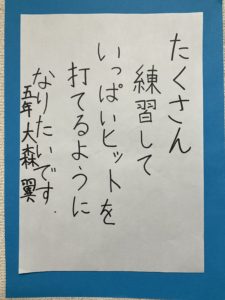 たくさん
練習して
いっぱいヒットを
打てるように
なりたいです.
五年 大森 翼